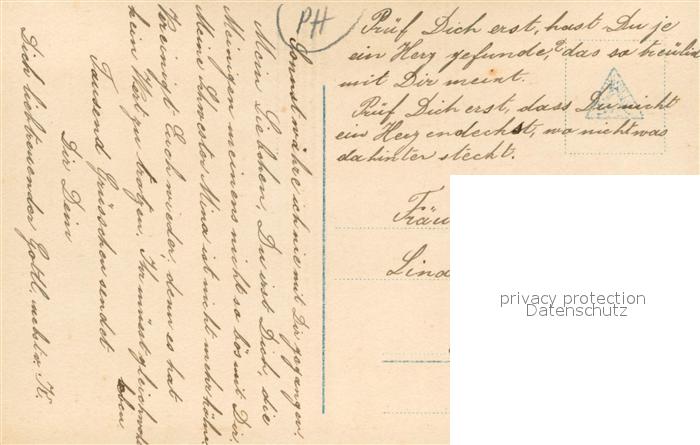 PH
Prüf Dich erst, hast Du je
ein Herz gefunde, das so treulich
mit Dir meint.
Prüf Dich erst, dass Du nicht
ein Herz endechst, wo nicht was
dahinter steckt.
Fräu
Lina
privacy protection
Datenschutz
Sonst wäre ich nie mit Dir gegangen.
Mein Liebchen, Du irst Dich, die
Meinigen meinens nicht so bös mit Dir.
Meine Schwester Mina ist nicht mehr höhn.
Vereinigt Euch wieder, denn es hat
kein Wert zu trotzen, Ihr müsst gleichwohl
leben.
Tausend Grüsschen sendet
Dir Dein
Dich liebtreuender Gottl. K.